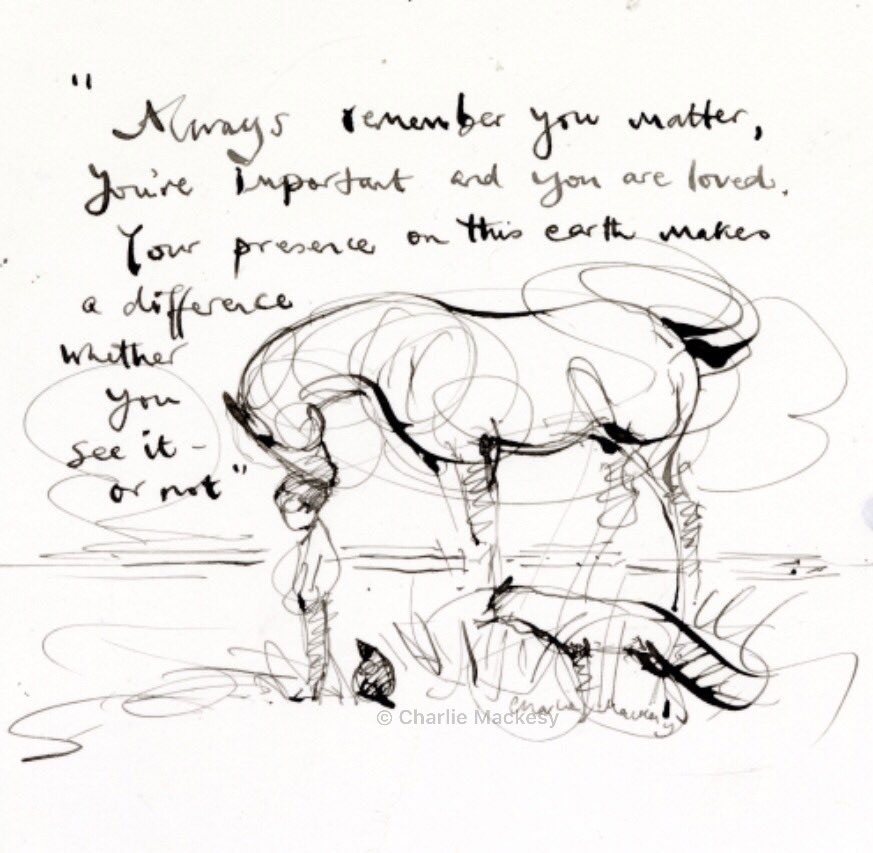 "
Always remember you matter,
You're important and you are loved.
Your presence on this earth makes
a difference
whether
you
see it –
or not"
Charlie Mackesy
© Charlie Mackesy